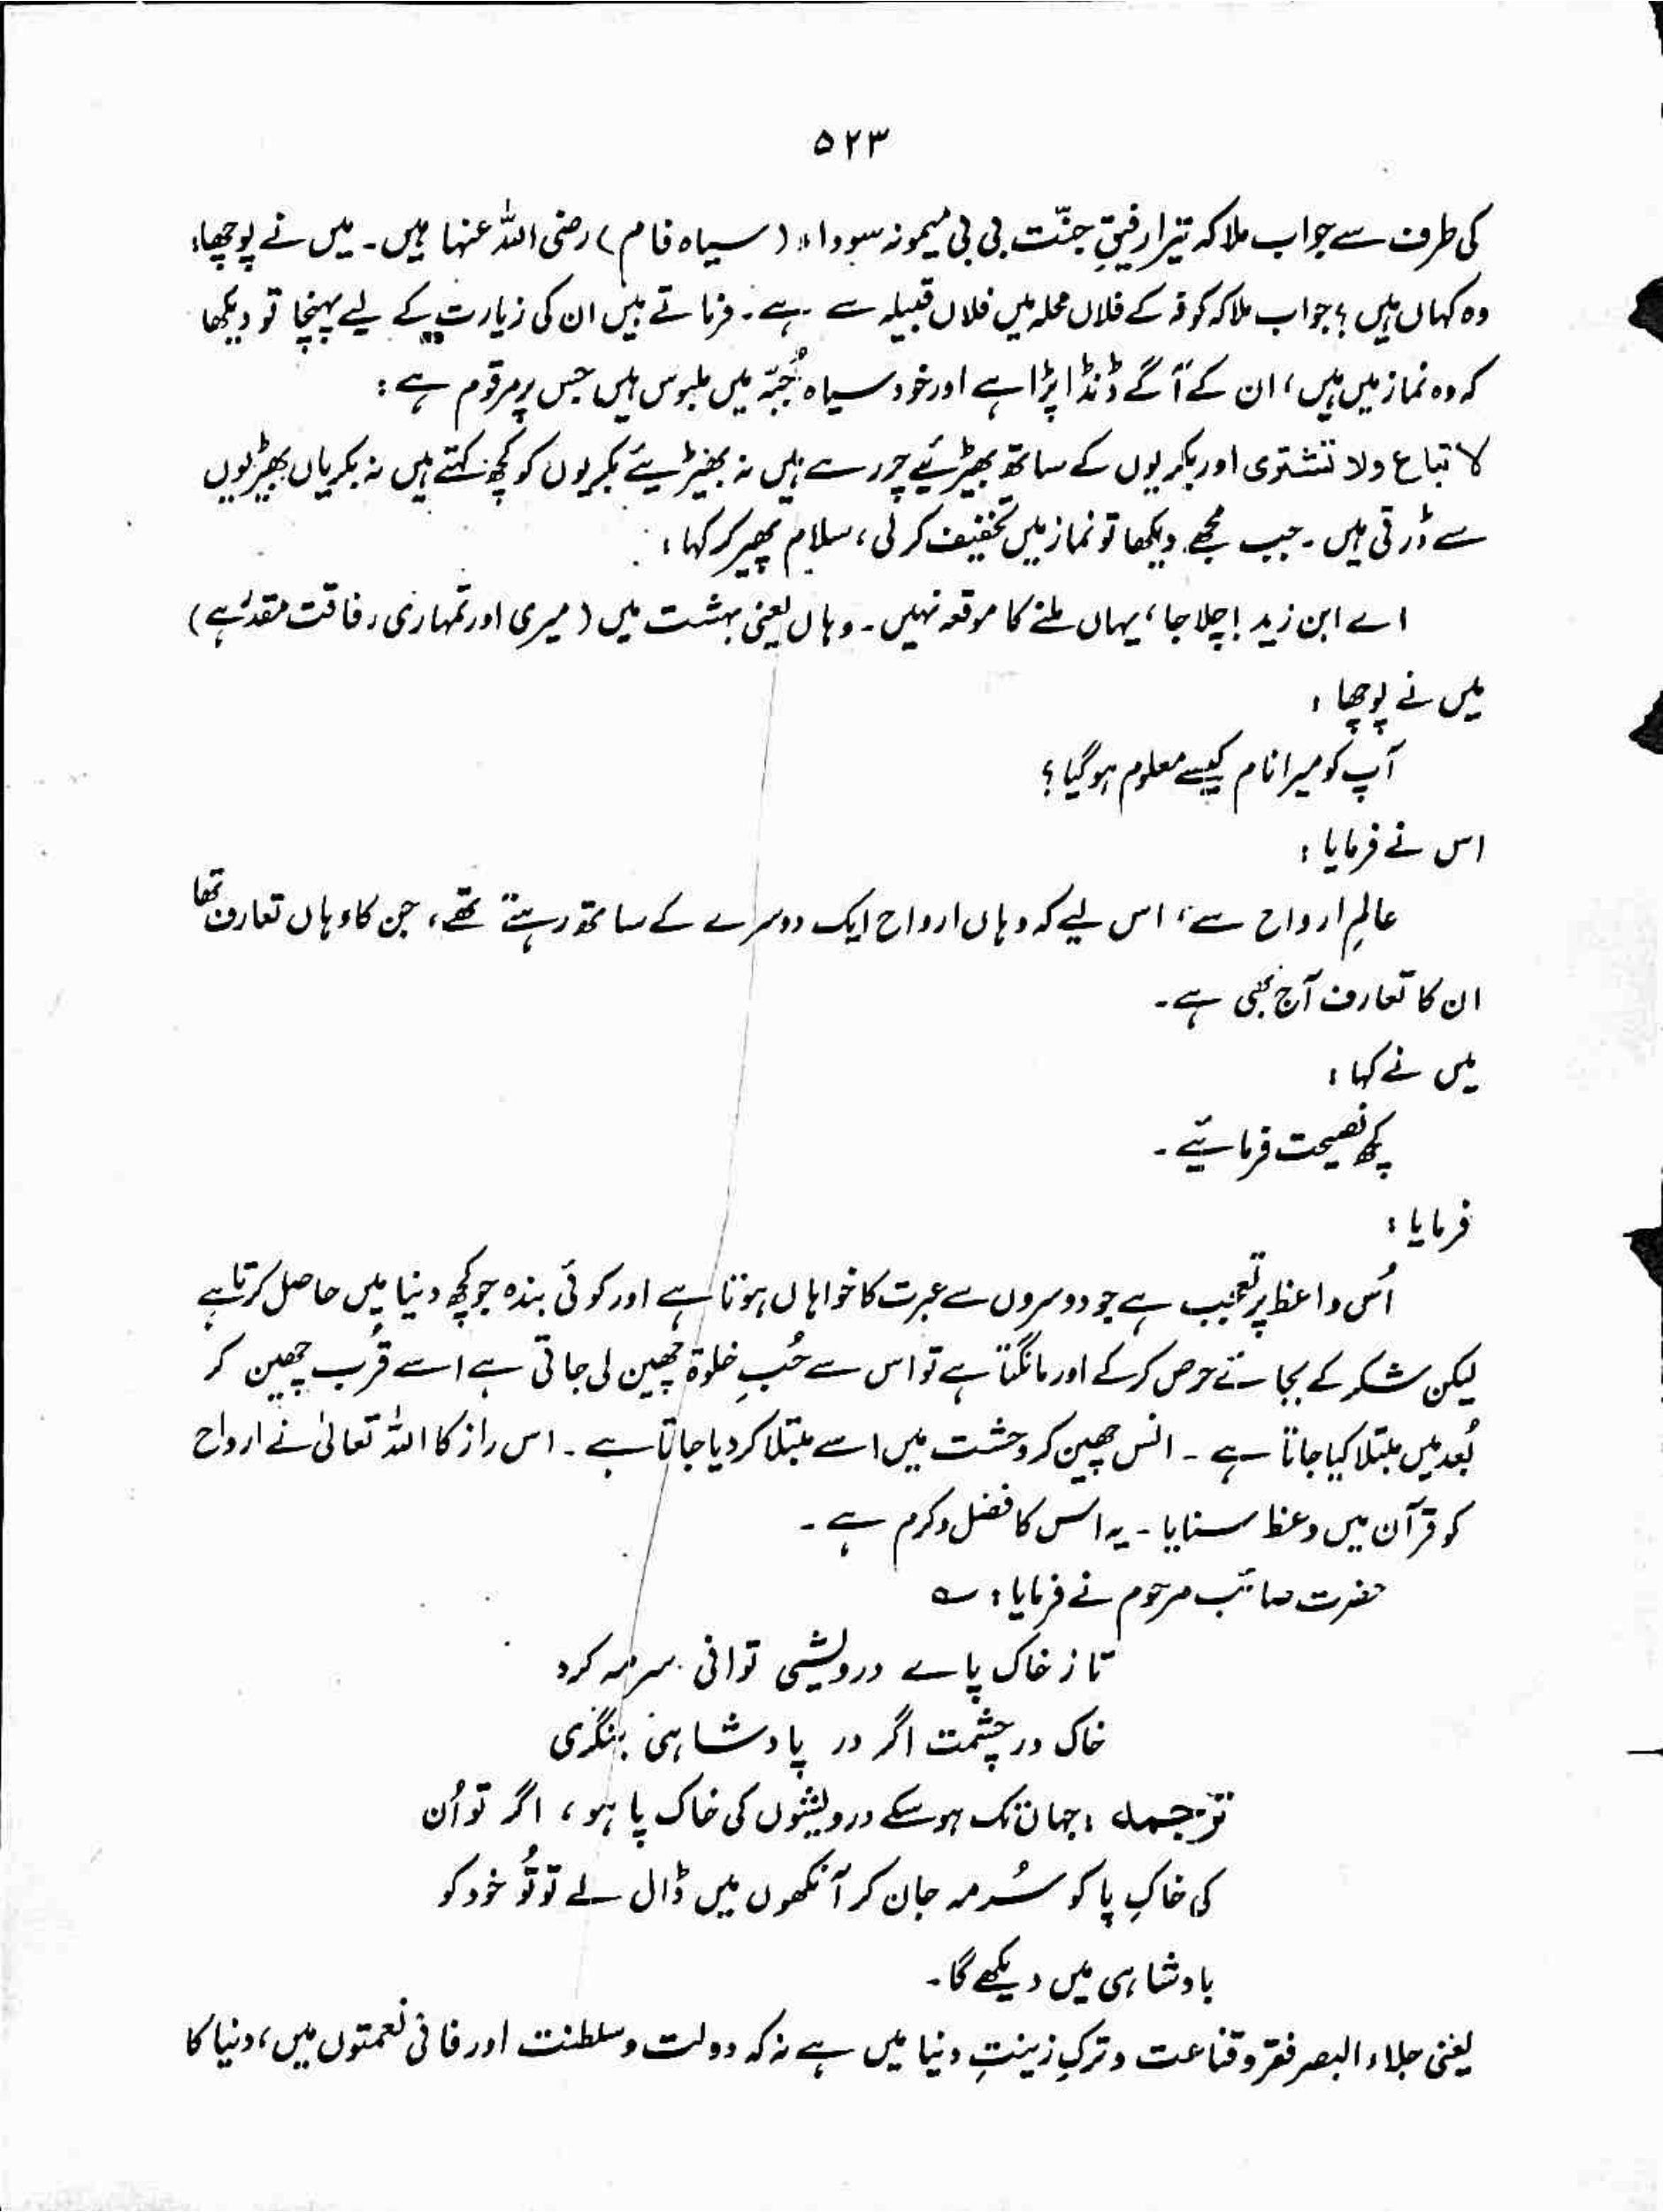 ۵۲۳
کی طرف سے جواب ملا کہ تیرا رفیقِ جنّت بی بی میمونہ سوداء (سیاہ فام) رضی اللہ عنہا ہیں۔ میں نے پوچھا:
وہ کہاں ہیں؟ جواب ملا کہ کوفہ کے فلاں محلہ میں فلاں قبیلہ سے ہے۔ فرماتے ہیں ان کی زیارت کے لیے پہنچا تو دیکھا
کہ وہ نماز میں ہیں، ان کے آگے ڈنڈا پڑا ہے اور خود سیاہ جُبّہ میں ملبوس ہیں جس پر مرقوم ہے:
لا تباع ولا تشتری اور بکریوں کے ساتھ بھیڑیئے چر رہے ہیں نہ بھیڑیئے بکریوں کو کچھ کہتے ہیں نہ بکریاں بھیڑیوں
سے ڈرتی ہیں۔ جب مجھے دیکھا تو نماز میں تخفیف کر لی، سلام پھیر کر کہا:
اے ابن زید! چلا جا، یہاں ملنے کا موقعہ نہیں۔ وہاں یعنی بہشت میں (میری اور تمہاری رفاقت مقدر ہے)
میں نے پوچھا:
آپ کو میرا نام کیسے معلوم ہو گیا؟
اس نے فرمایا:
عالمِ ارواح سے، اس لیے کہ وہاں ارواح ایک دوسرے کے ساتھ رہتے تھے، جن کا وہاں تعارف تھا
ان کا تعارف آج بھی ہے۔
میں نے کہا:
کچھ نصیحت فرمائیے۔
فرمایا:
اُس واعظ پر تعجب ہے جو دوسروں سے عبرت کا خواہاں ہوتا ہے اور کوئی بندہ جو کچھ دنیا میں حاصل کرتا ہے
لیکن شکر کے بجائے حرص کر کے اور مانگتا ہے تو اس سے حُبِ خلوۃ چھین لی جاتی ہے اسے قُرب چھین کر
بُعد میں مبتلا کیا جاتا ہے۔ انس چھین کر وحشت میں اسے مبتلا کر دیا جاتا ہے۔ اس راز کا اللہ تعالیٰ نے ارواح
کو قرآن میں وعظ سنایا۔ یہ اس کا فضل و کرم ہے۔
حضرت صائب مرحوم نے فرمایا: ؎
تا ز خاک پاے درویشی توانی سرمہ کرد
خاک در چشمت اگر در پادشاہی بنگری
ترجمہ: جہاں تک ہو سکے درویشوں کی خاک پا ہو، اگر تو اُن
کی خاکِ پا کو سُرمہ جان کر آنکھوں میں ڈال لے تو تُو خود کو
بادشاہی میں دیکھے گا۔
یعنی جلاء البصر فقر و قناعت و ترکِ زینتِ دنیا میں ہے نہ کہ دولت و سلطنت اور فانی نعمتوں میں، دنیا کا